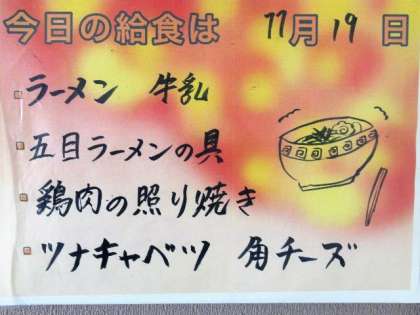 今日の給食は 11月19日
ラーメン 牛乳
五目ラーメンの具
鶏肉の照り焼き
ツナキャベツ 角チーズ